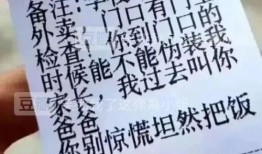 备注：
外卖，门口有门
检查，你到门口的
时候能不能伪装我
家长，我过去叫你
爸爸
你别惊慌坦然把饭